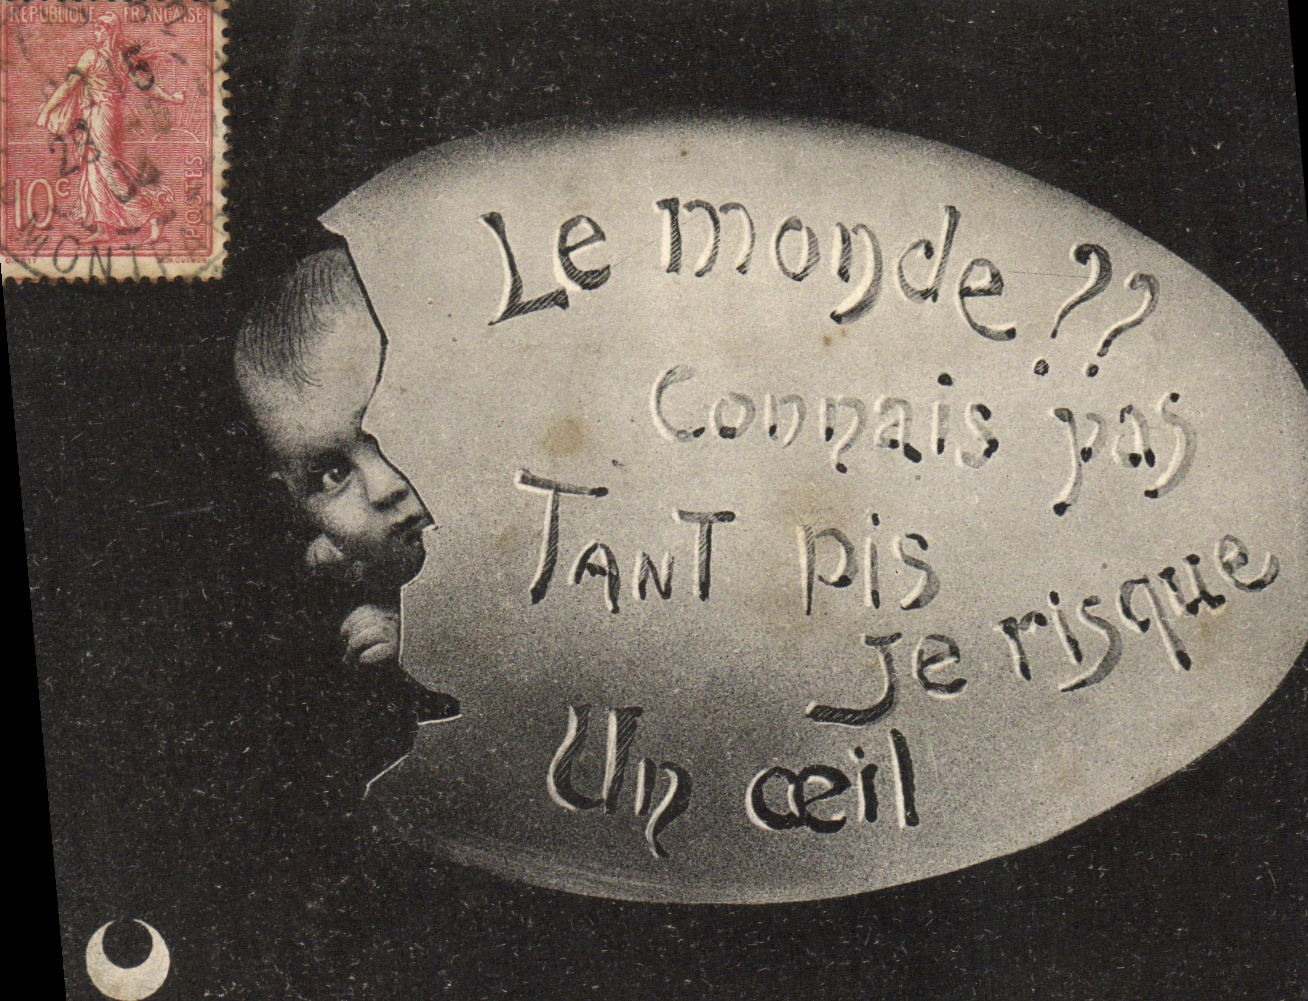 RÉPUBLIQUE FRANÇAISE
10c
POSTES
Le monde ??
Connais pas
TANT pis
Je risque
Un œil